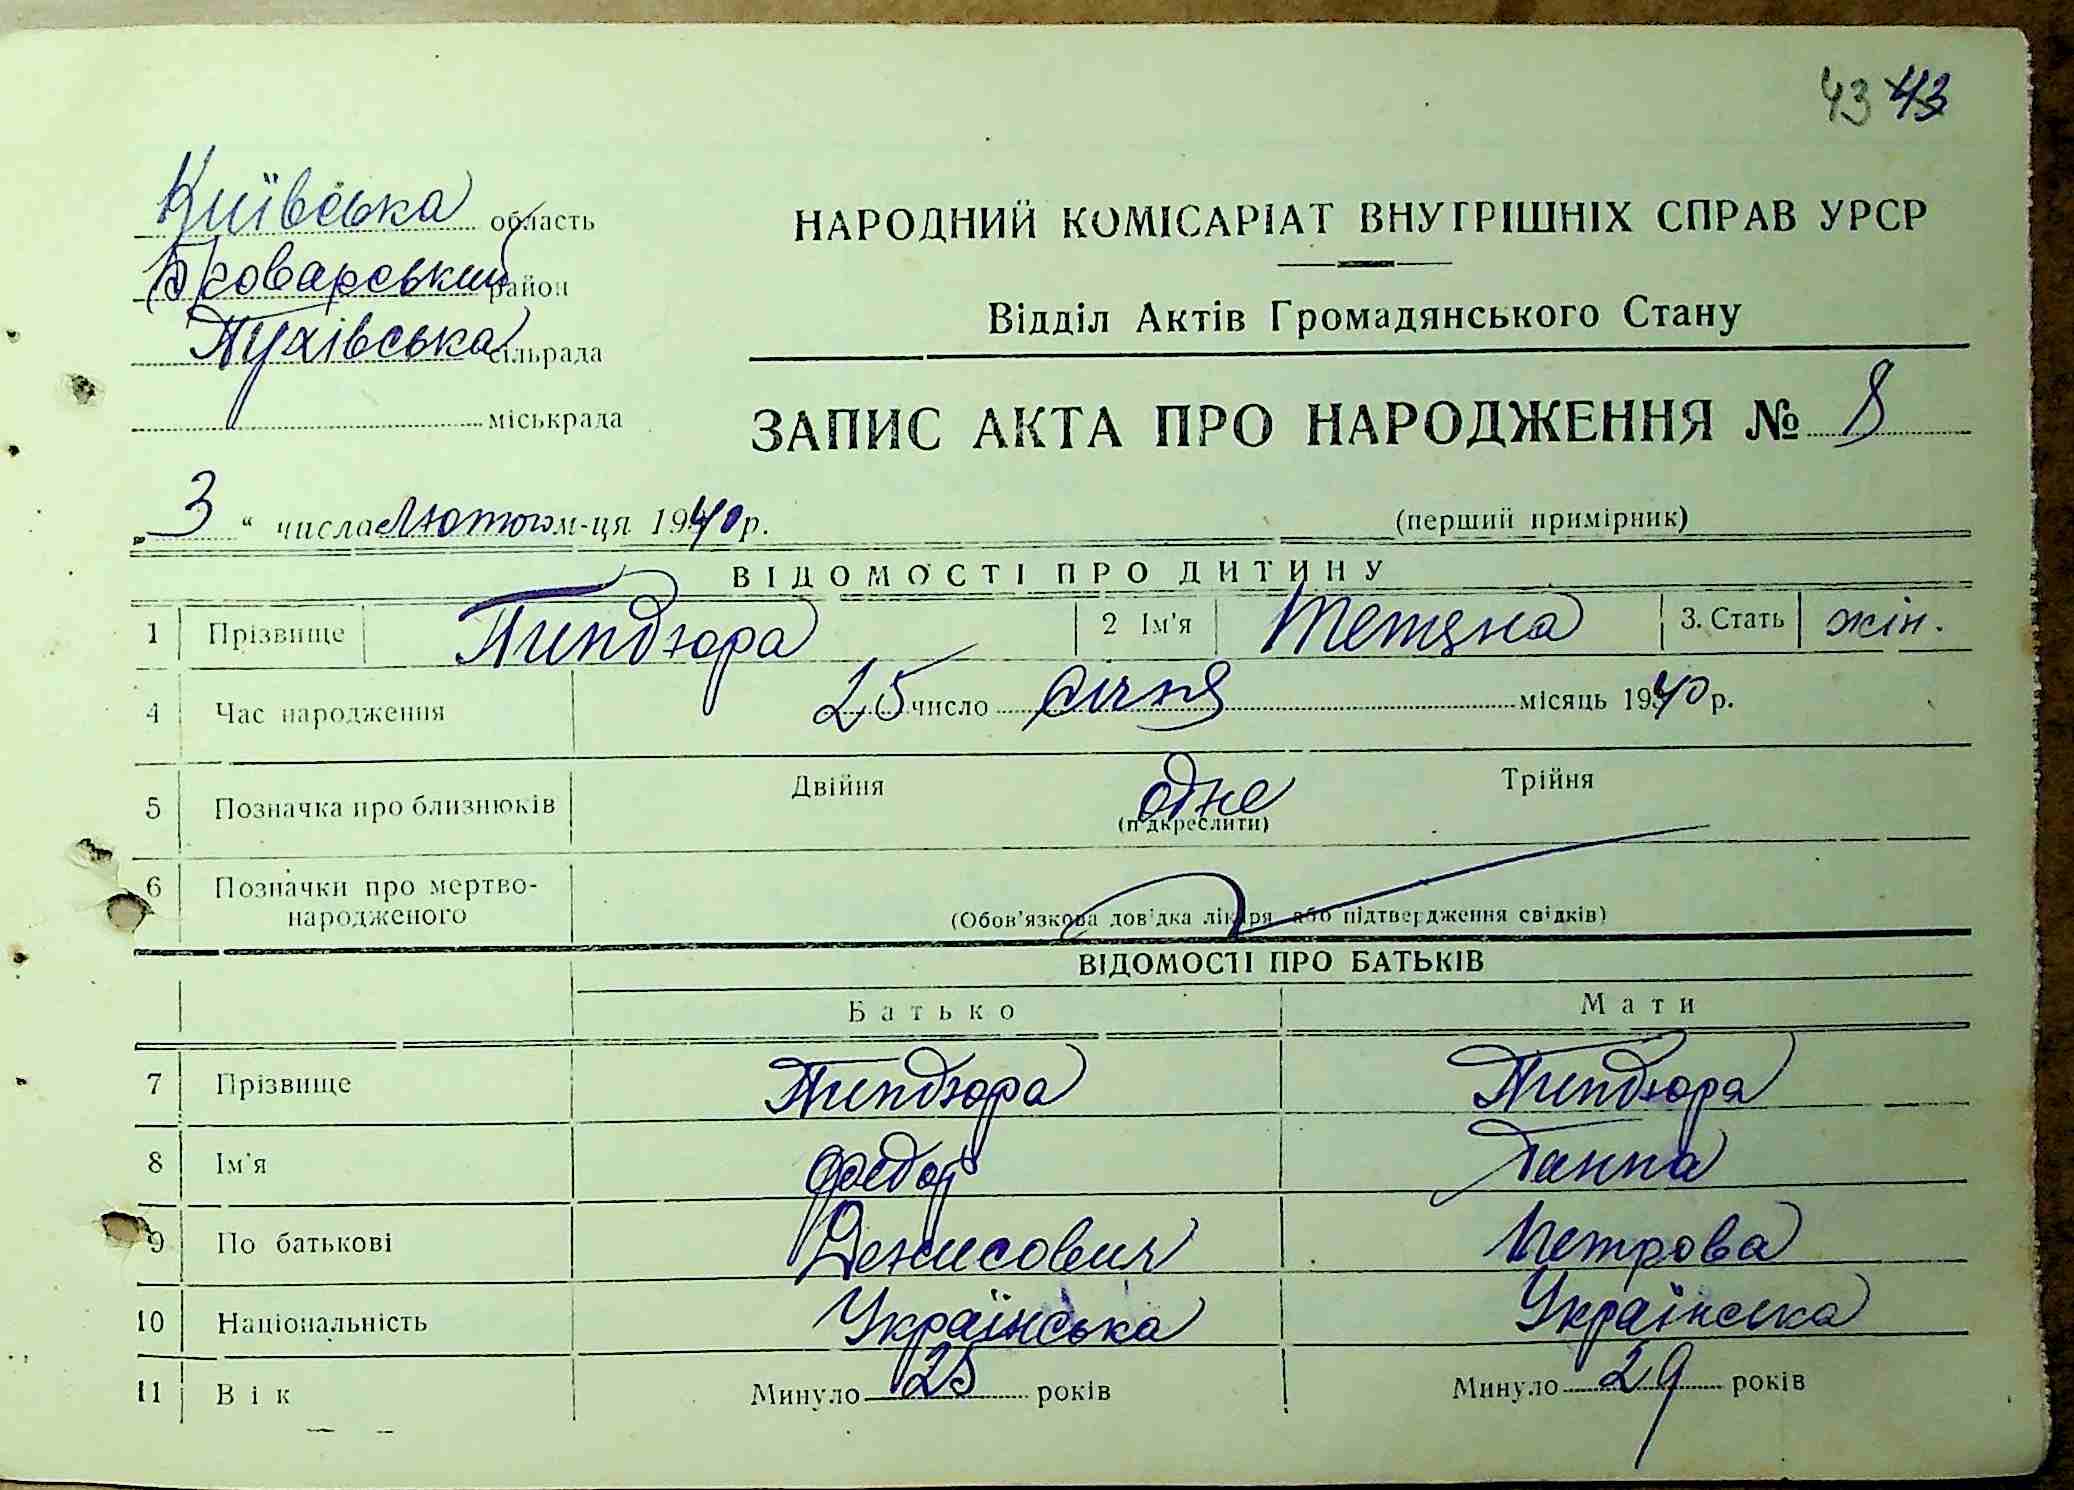 43 43
Київська область
Броварський район
Пухівська сільрада
міськрада
НАРОДНИЙ КОМІСАРІАТ ВНУТРІШНІХ СПРАВ УРСР
Відділ Актів Громадянського Стану
ЗАПИС АКТА ПРО НАРОДЖЕННЯ № 8
„3“ числа лютого м-ця 1940 р.
(перший примірник)
ВІДОМОСТІ ПРО ДИТИНУ
1 Прізвище Пиндюра 2 Ім'я Тетяна 3. Стать жін.
4 Час народження 25 число січня місяць 1940 р.
5 Позначка про близнюків Двійня одне Трійня
(підкреслити)
6 Позначки про мертво-
народженого
(Обов'язкова довідка лікаря або підтвердження свідків)
ВІДОМОСТІ ПРО БАТЬКІВ
Батько Мати
7 Прізвище Пиндюра Пиндюра
8 Ім'я Федор Ганна
9 По батькові Денисович Петрова
10 Національність Українська Українська
11 Вік Минуло 25 років Минуло 29 років